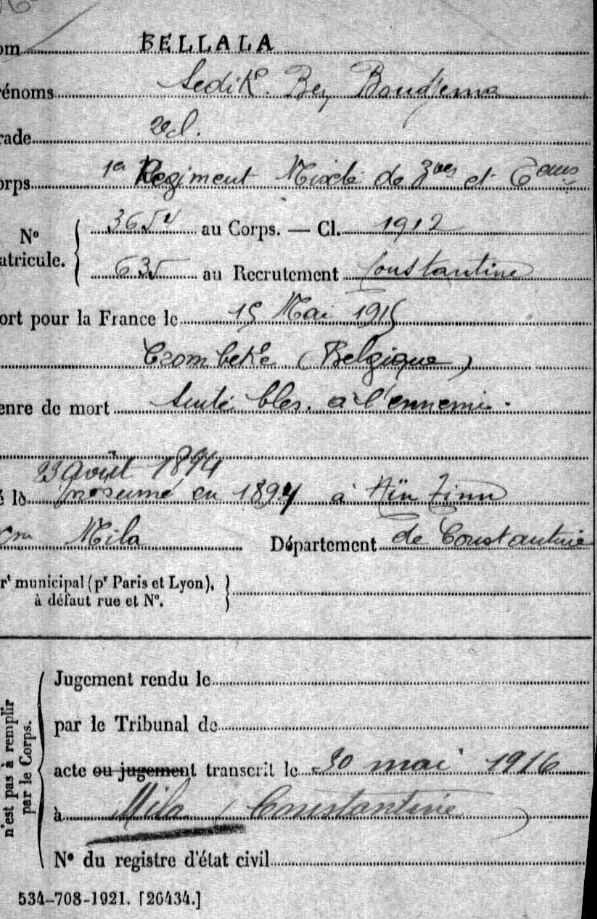 om BELLALA
énoms Sedik Bey Boudjema
rade 2e cl.
orps 1er Regiment Mixte de Zves et
N° 3654 au Corps. — Cl. 1912
atricule. 635 au Recrutement Constantine
ort pour la France le 15 Mai 1915
(Belgique)
enre de mort Suite bles. a l'ennemi.
23 Août 1894
é le présumé en 1894 à Aïn Tinn
Mila Département de Constantine
rt municipal (pr Paris et Lyon),
à défaut rue et N°.
Jugement rendu le
par le Tribunal de
acte ou jugement transcrit le 30 mai 1916
à Mila (Constantine)
N° du registre d'état civil
n'est pas à remplir
par le Corps.
534-708-1921. [26434.]